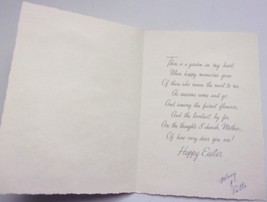 There is a garden in my heart
Where happy memories grow
Of those who mean the most to me
As seasons come and go.
And among the fairest flowers
And the loveliest by far
Are the thoughts I cherish, Mother,
Of how very dear you are!
Happy Easter